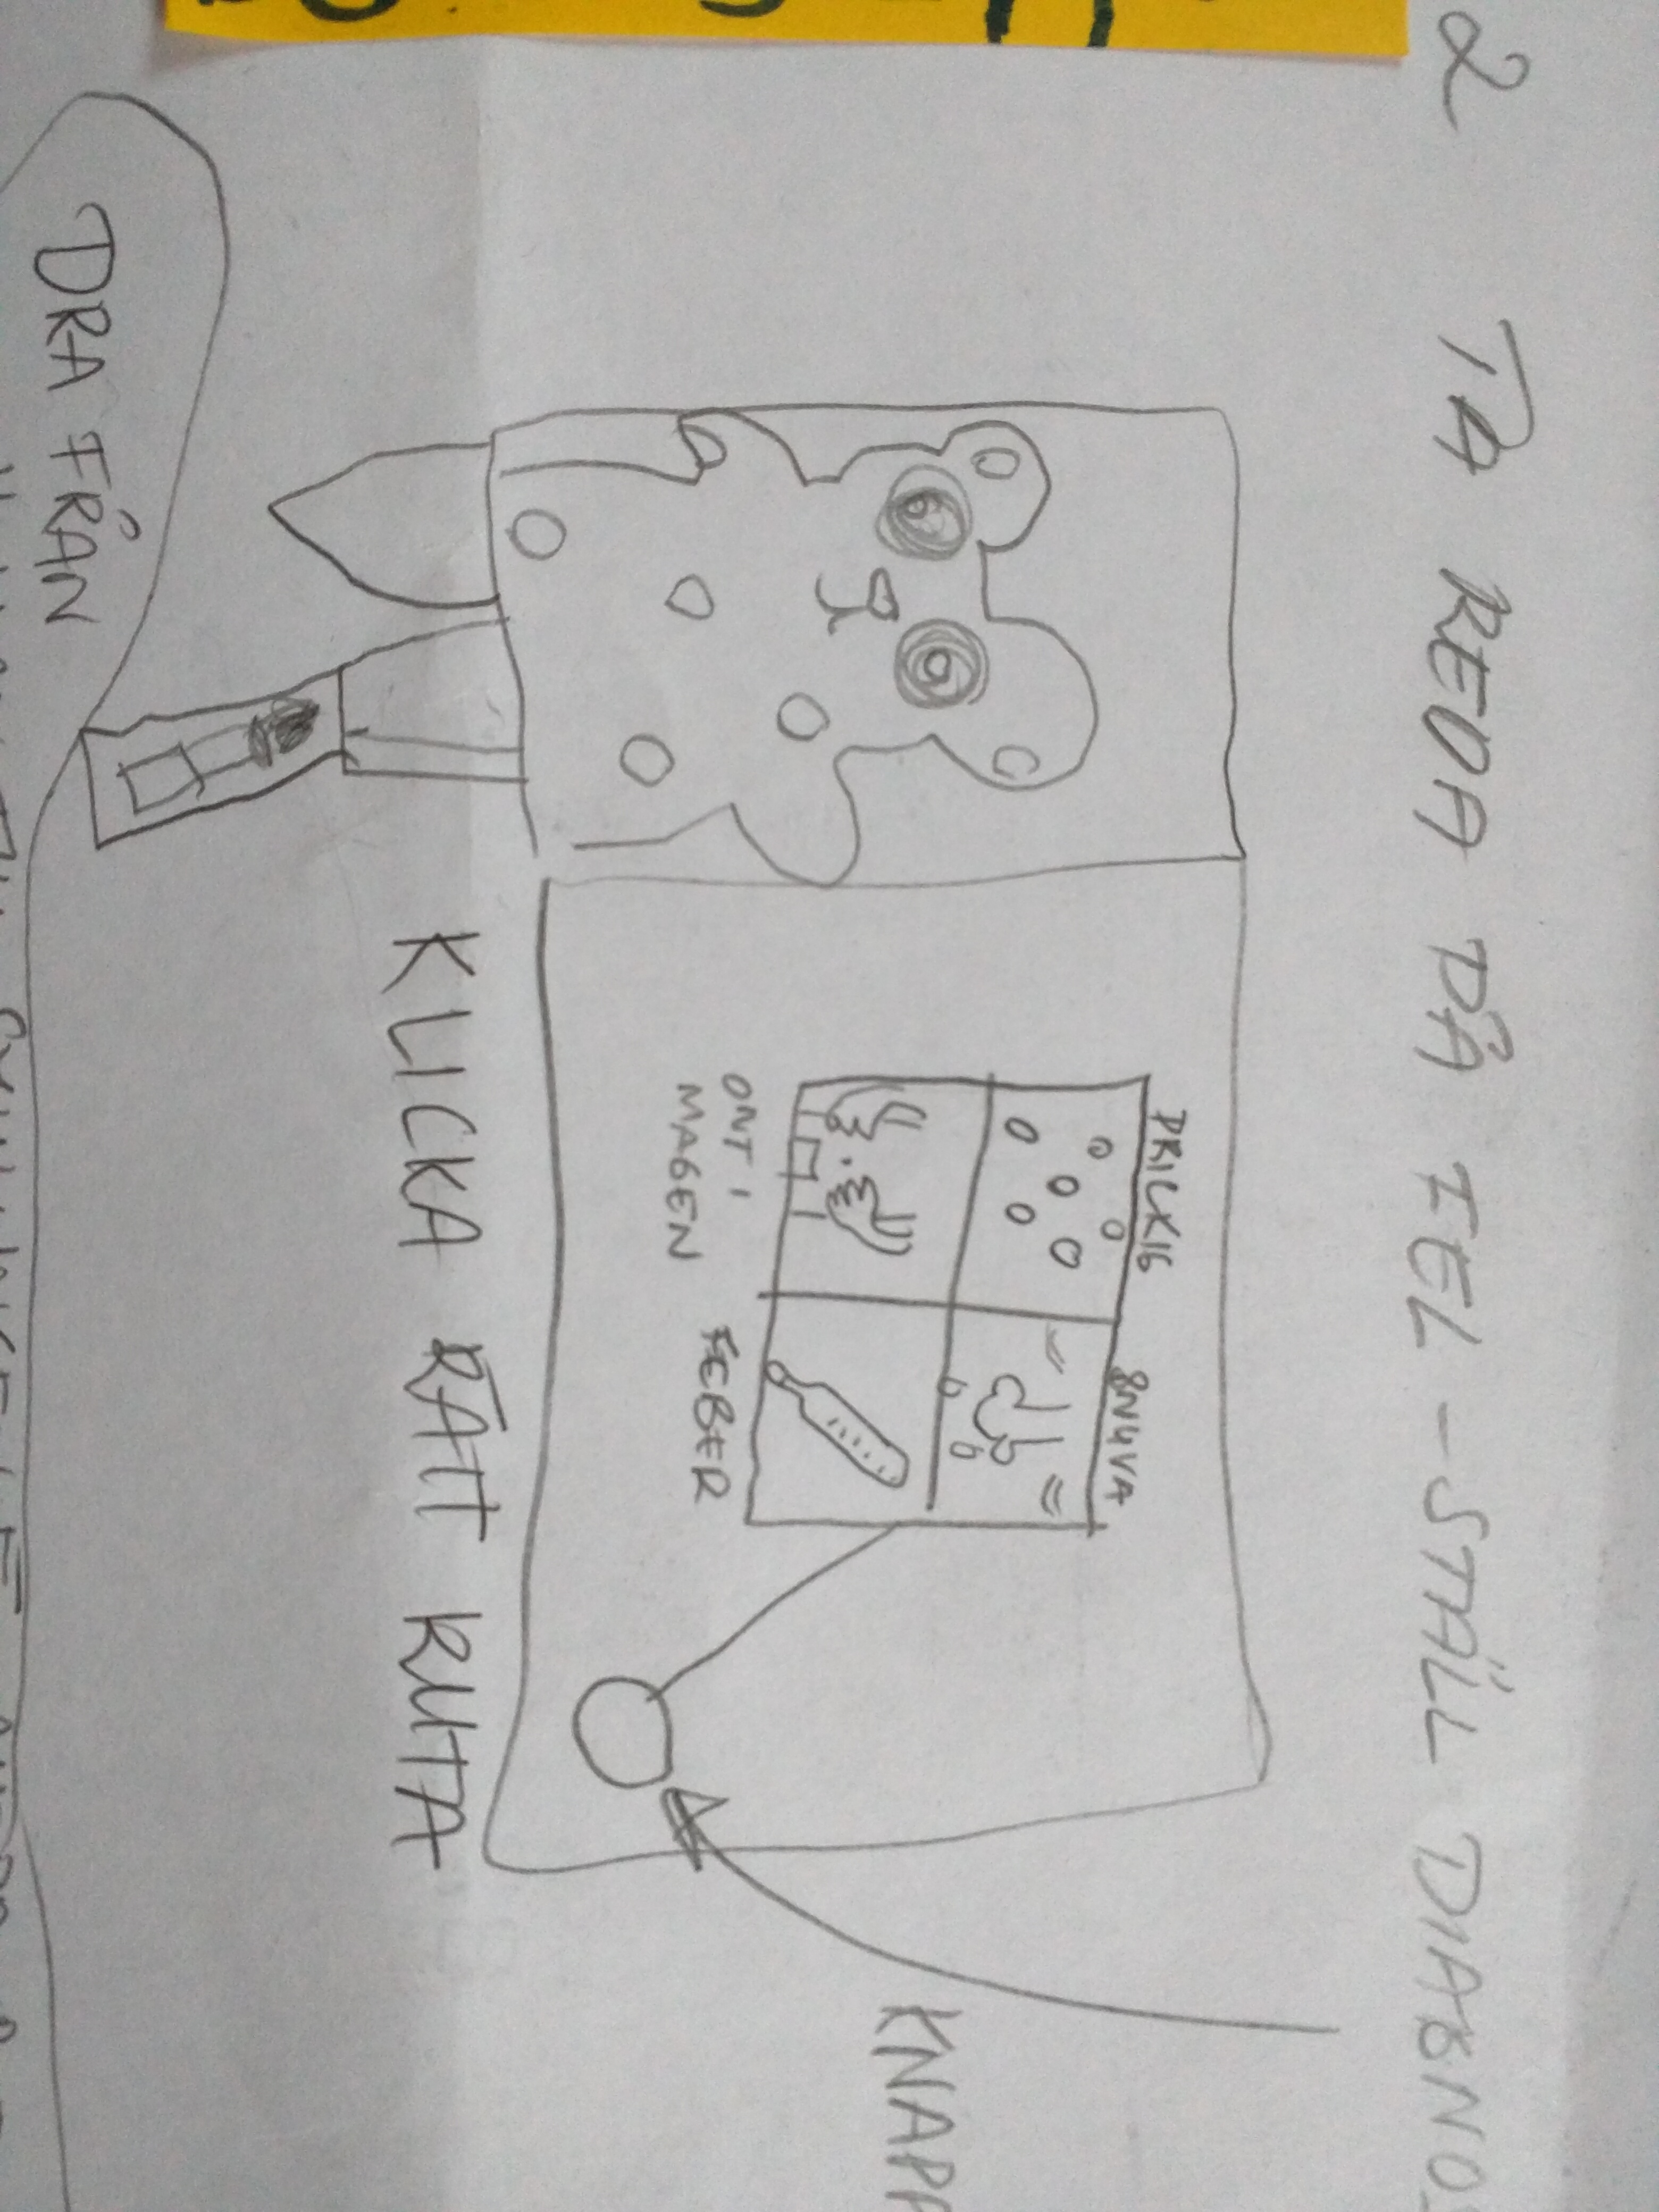 2 TA REDA PÅ FEL - STÄLL DIAGNO
PRICKIG SNUVA
ONT I
MAGEN
FEBER
KNAPP
KLICKA RÄTT RUTA
DRA FRÅN